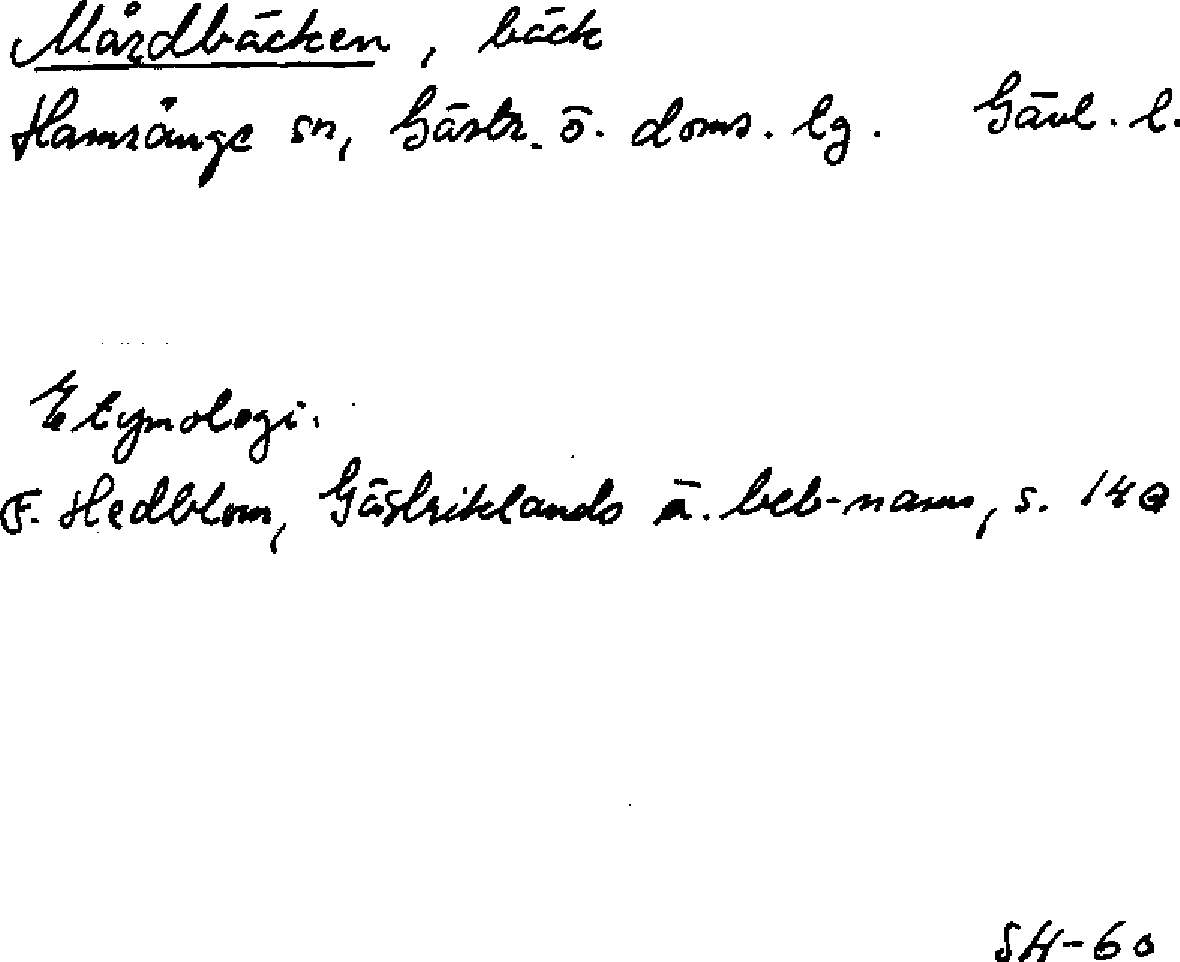 Mårdbäcken, bäck
Hamrånge sn, Gästr. ö. doms. lg. Gävl. l.
Etymologi.
F. Hedblom, Gästriklands ä. beb-namn, s. 140
SH-60